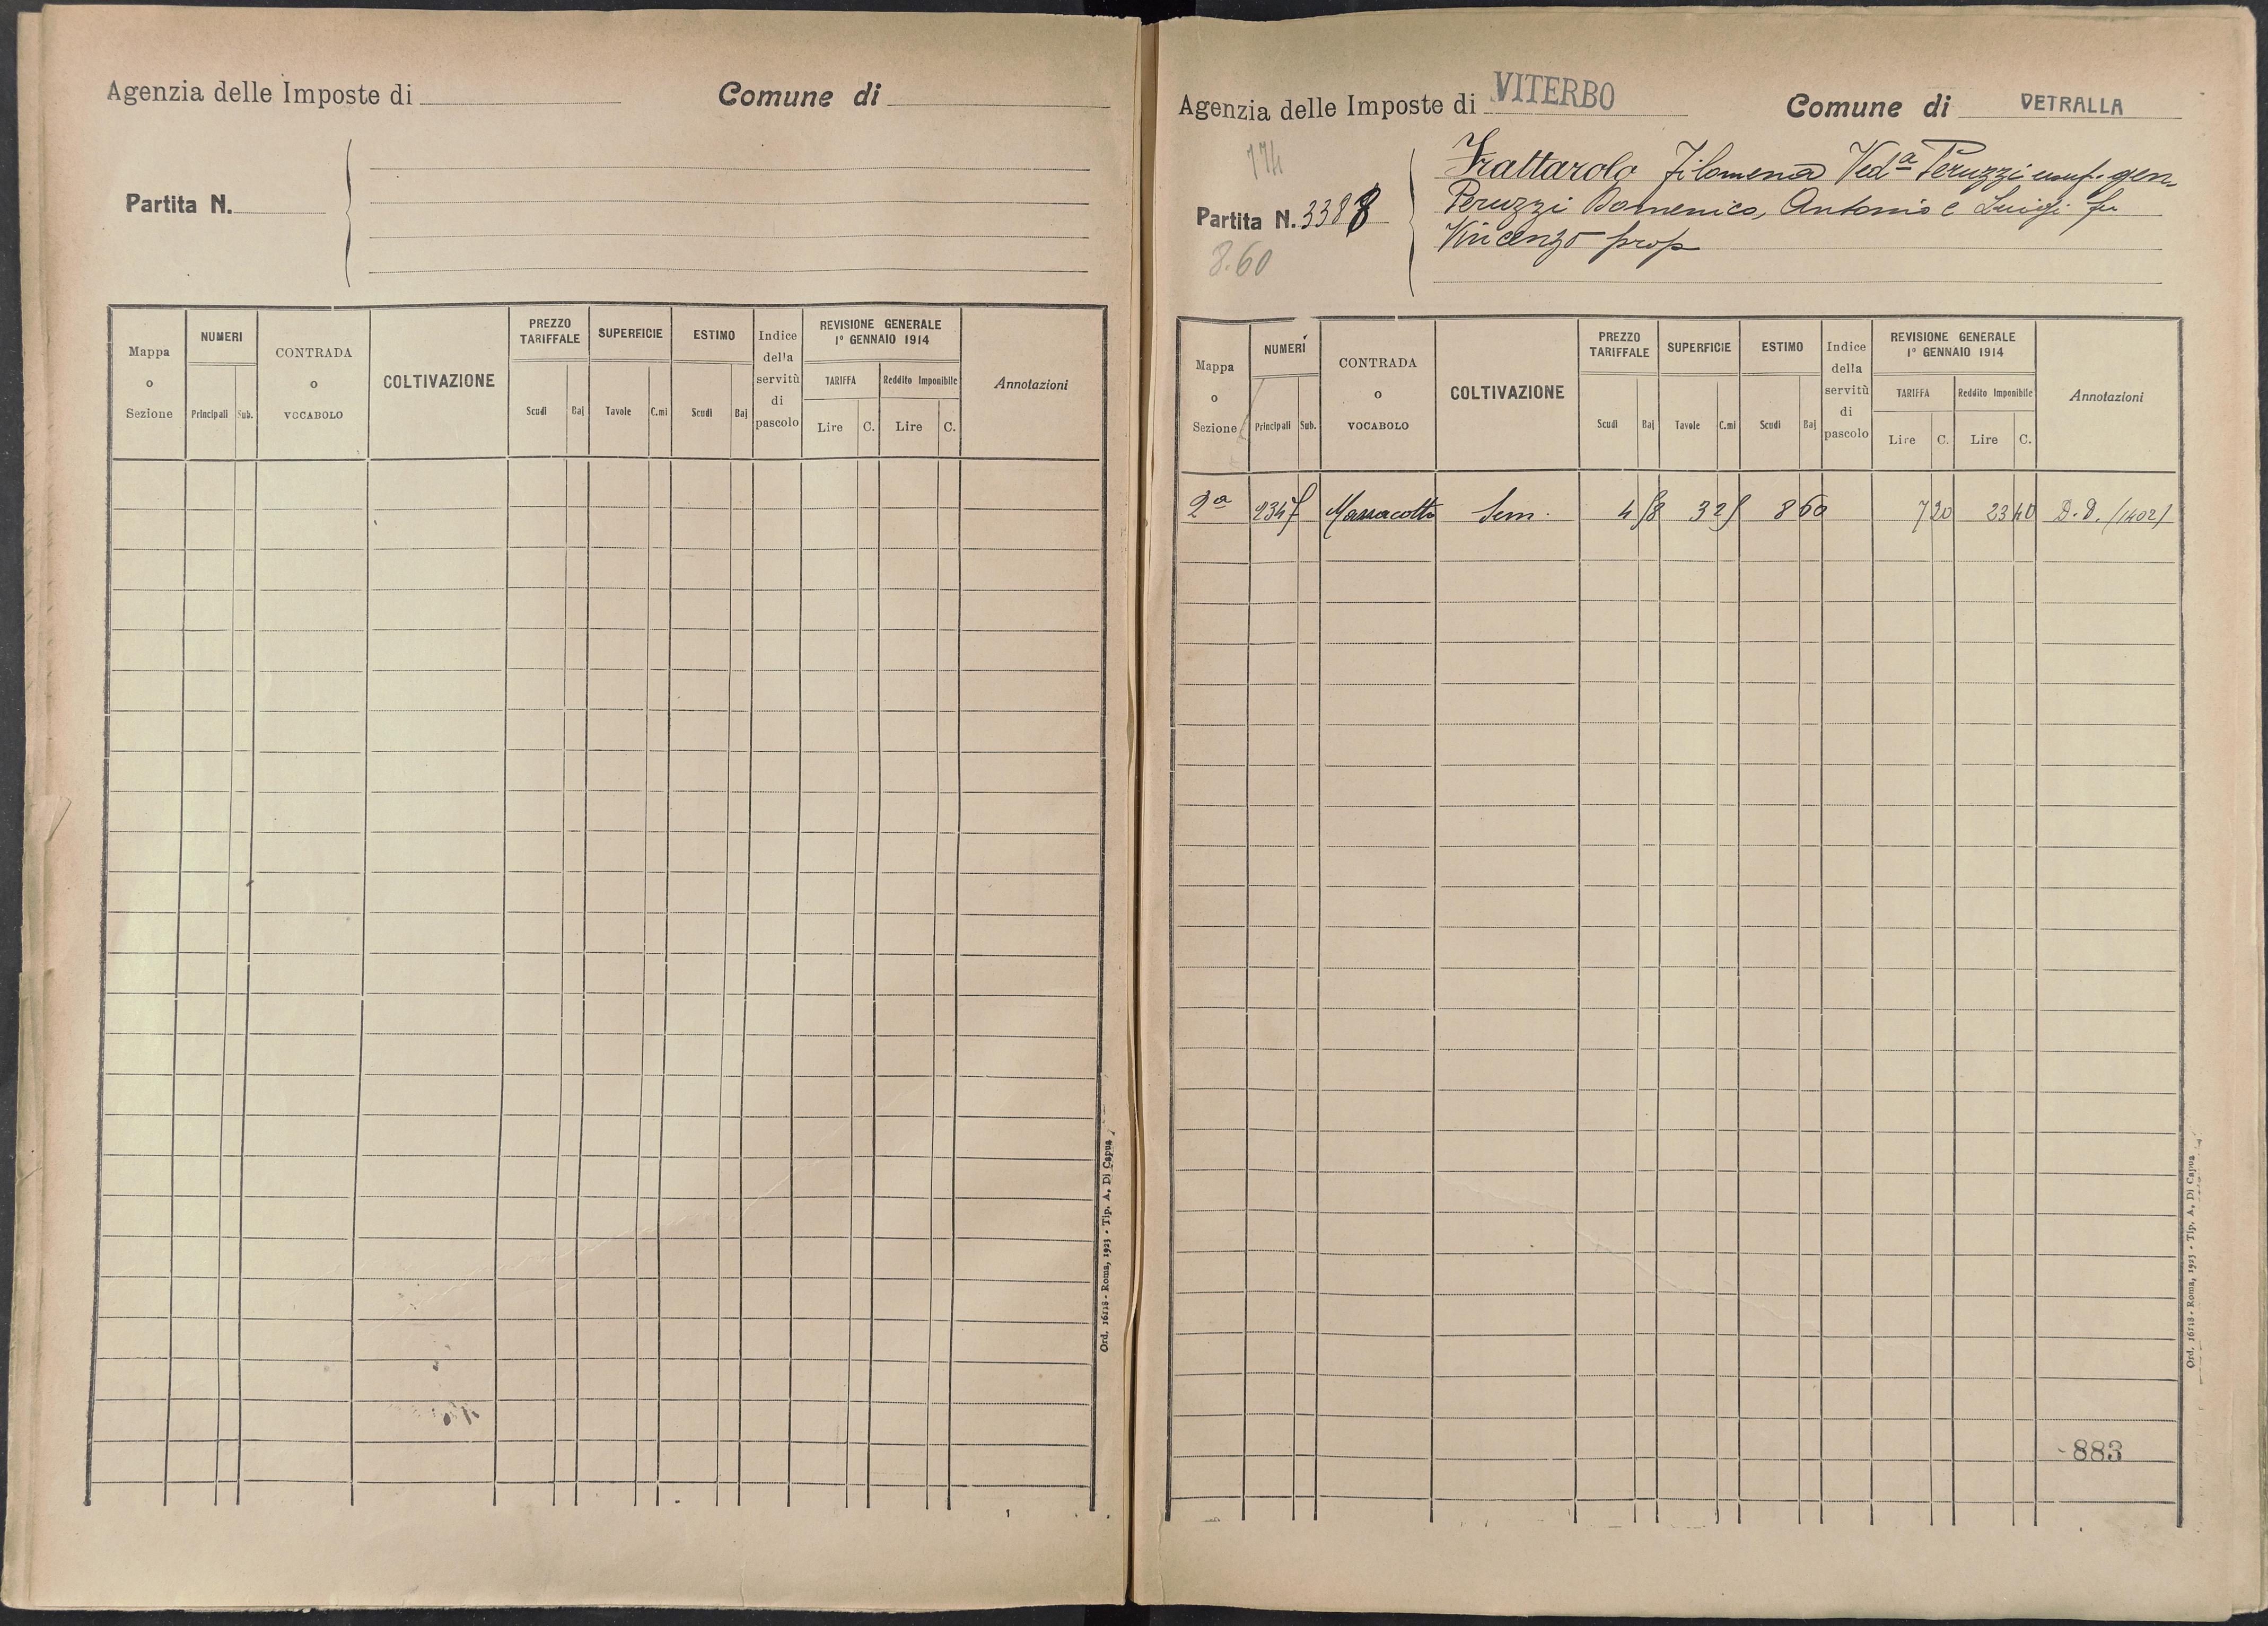 Agenzia delle Imposte di
Comune di
Partita N.
Mappa o Sezione
NUMERI
Principali
Sub.
CONTRADA o VOCABOLO
COLTIVAZIONE
PREZZO TARIFFALE
Scudi
Baj
SUPERFICIE
Tavole
C.mi
ESTIMO
Scudi
Baj
Indice della servitù di pascolo
REVISIONE GENERALE
1° GENNAIO 1914
TARIFFA
Reddito Imponibile
Lire
C.
Lire
C.
Annotazioni
Ord. 16118 - Roma, 1923 - Tip. A. Di Capua
Agenzia delle Imposte di VITERBO
Comune di VETRALLA
774
Partita N. 3388
8.60
Frattarolo Filomena Ved.a Peruzzi usuf. gen.
Peruzzi Domenico, Antonio e Luigi fu
Vincenzo prop
Mappa o Sezione
NUMERI
Principali
Sub.
CONTRADA o VOCABOLO
COLTIVAZIONE
PREZZO TARIFFALE
Scudi
Baj
SUPERFICIE
Tavole
C.mi
ESTIMO
Scudi
Baj
Indice della servitù di pascolo
REVISIONE GENERALE
1° GENNAIO 1914
TARIFFA
Reddito Imponibile
Lire
C.
Lire
C.
Annotazioni
2a Sem. 8 60 7 20 23 40 D.D. (1402)
883
Ord. 16118 - Roma, 1923 - Tip. A. Di Capua